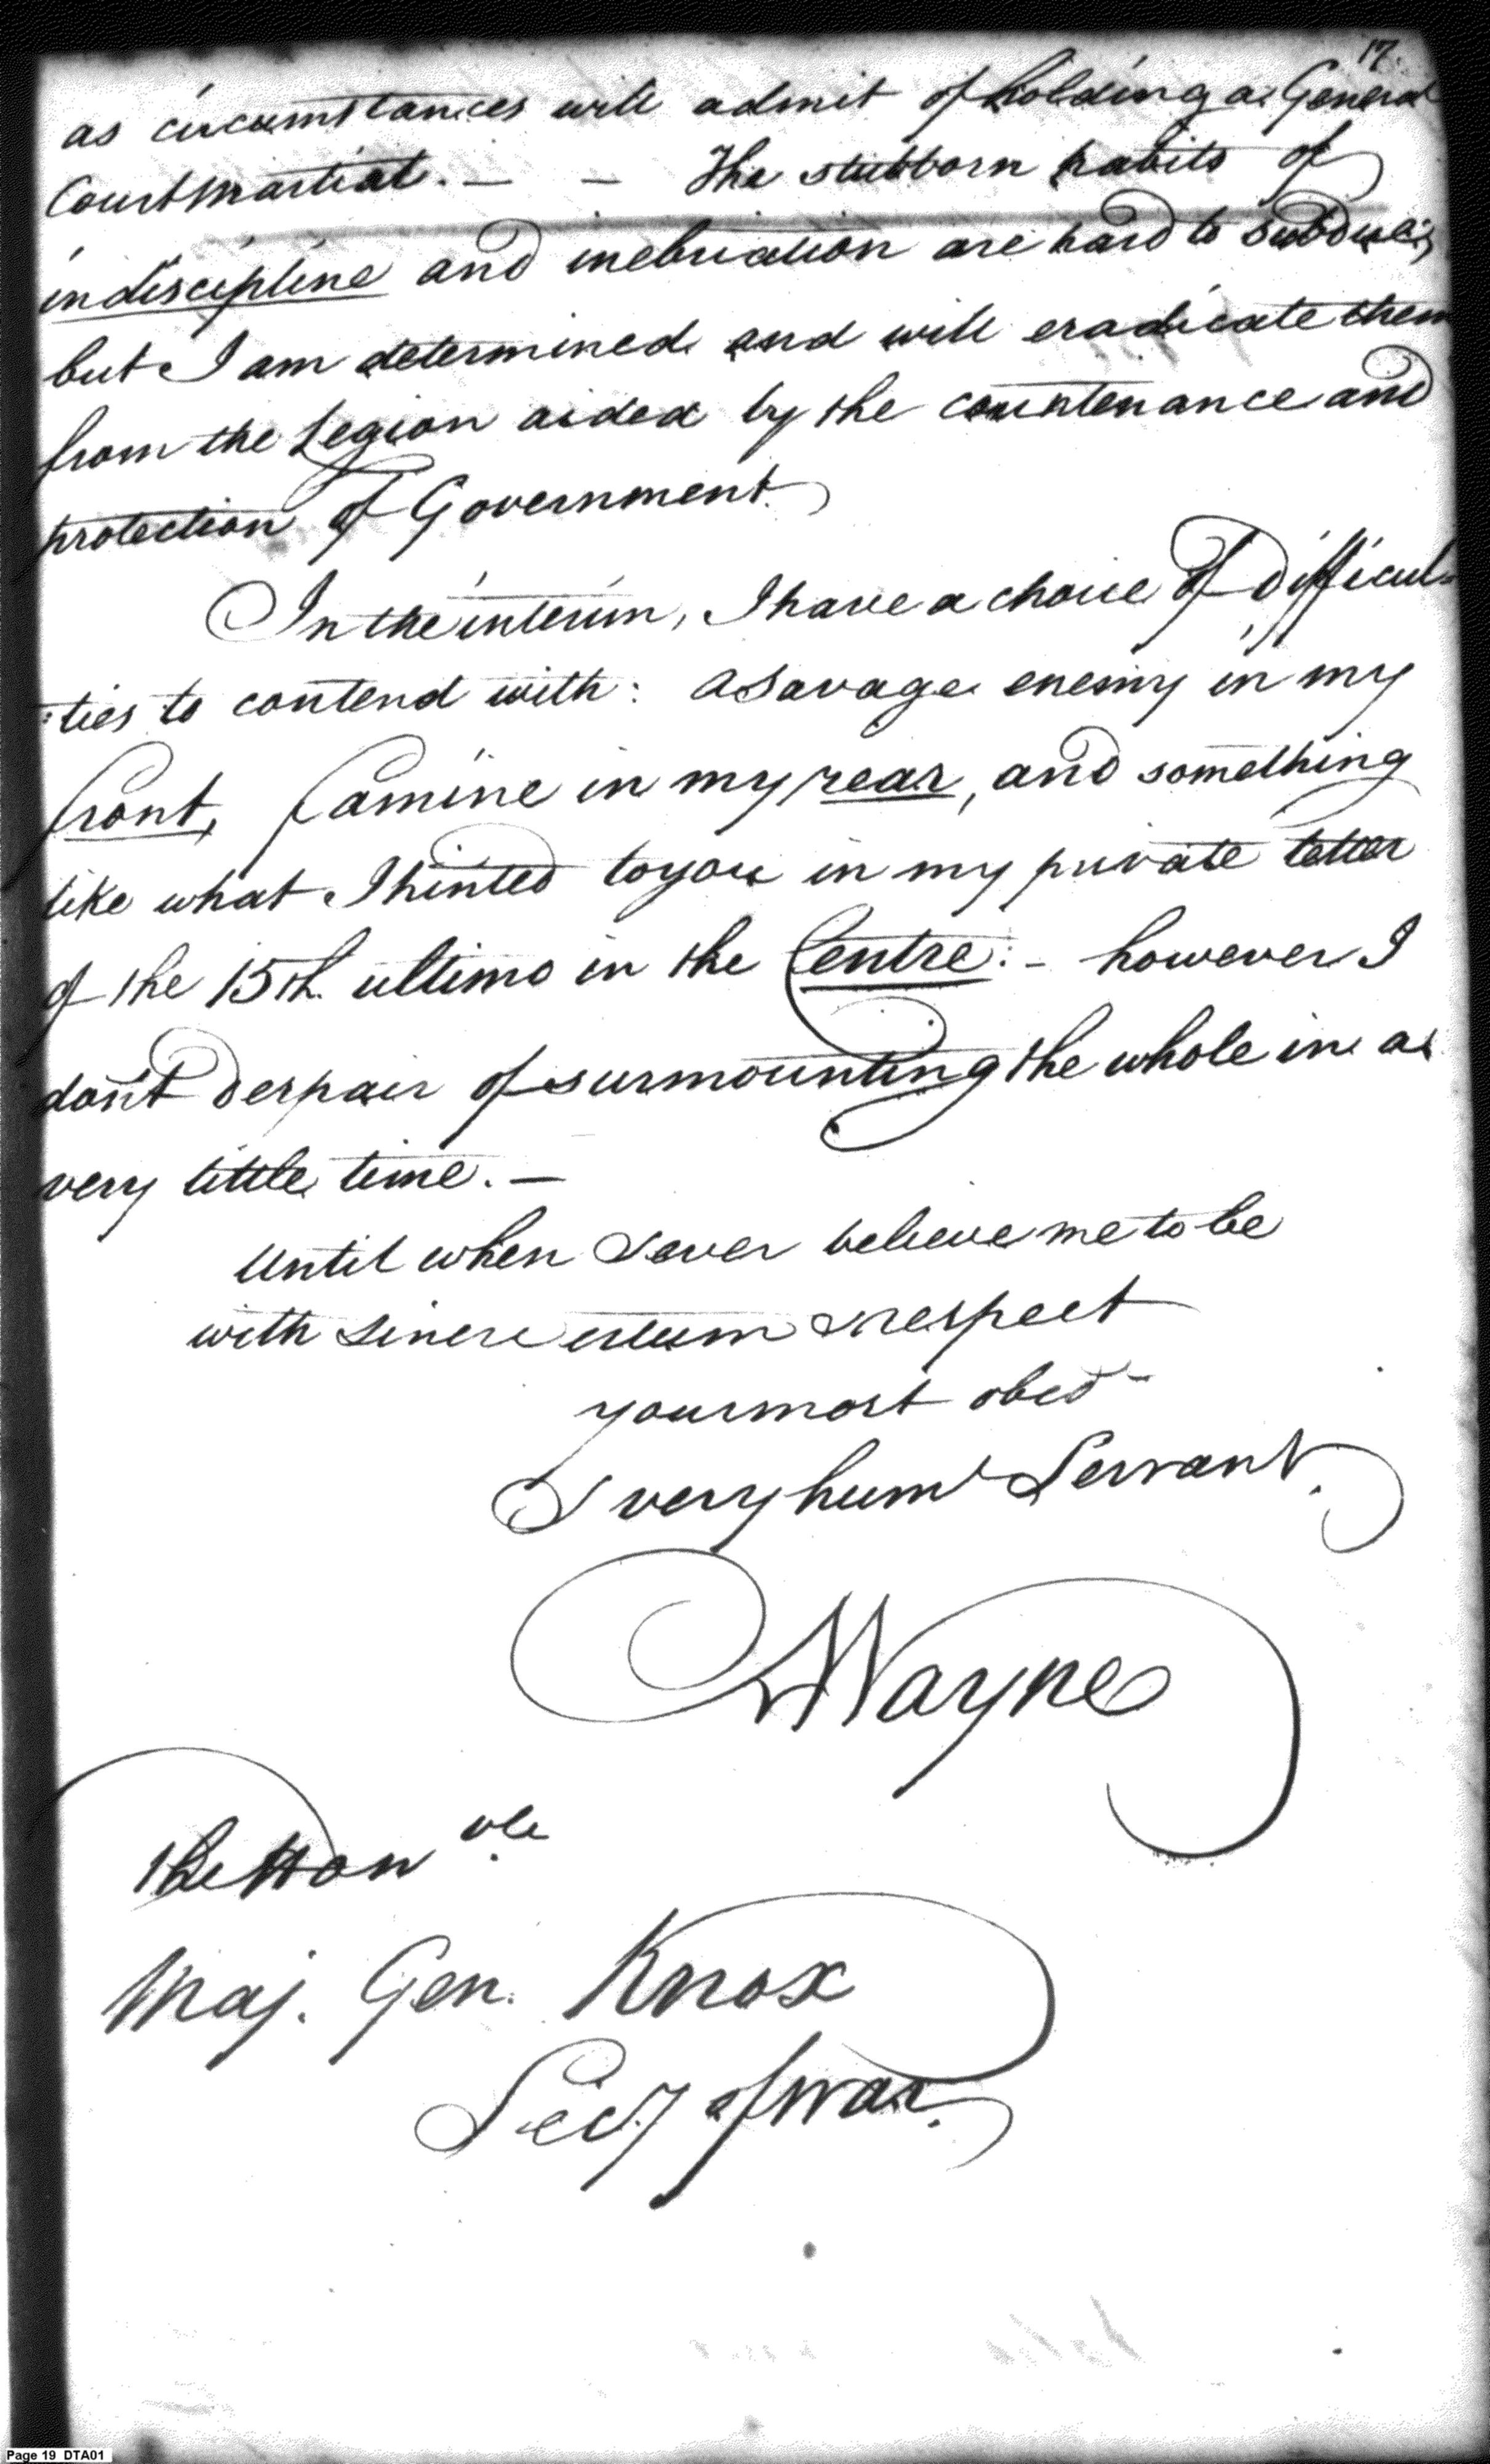 17.
as circumstances will admit of holding a General
Court martial. — — The stubborn habits of
indiscipline and inebriation are hard to subdue;
but I am determined and will eradicate them
from the Legion aided by the countenance and
protection of Government.
In the interim, I have a choice of difficul=
=ties to contend with: a savage enemy in my
front, famine in my rear, and something
like what I hinted to you in my private letter
of the 15th. ultimo in the Centre: - however I
don't despair of surmounting the whole in a
very little time. —
Until when & ever believe me to be
with sincere esteem & respect
your most obed
& very huml Servant.
A Wayne
The Honble
Maj. Gen. Knox
Secy of War.
Page 19 DTA01